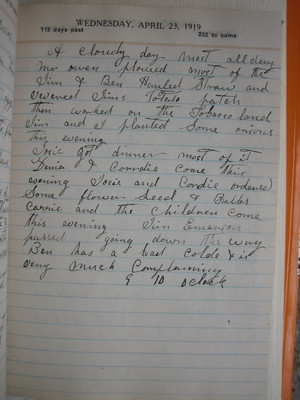 WEDNESDAY, APRIL 23, 1919
113 days past 252 to come
A cloudy day most all day
Mr owen plowed most of the
Jim & Ben Hauled Straw and
covered Jims Potato patch
then worked on the Tobacco land
Jim and I planted Some onions
this evening
Josie got dinner most of it
& come this
evening Josie and Cordie ordered
Some flower Seed & Bulbs
Carrie and the Children Come
this evening Jim Emerson
passed going down the way
Ben has a bad colde & is
very much Complaining
9 10 oclock